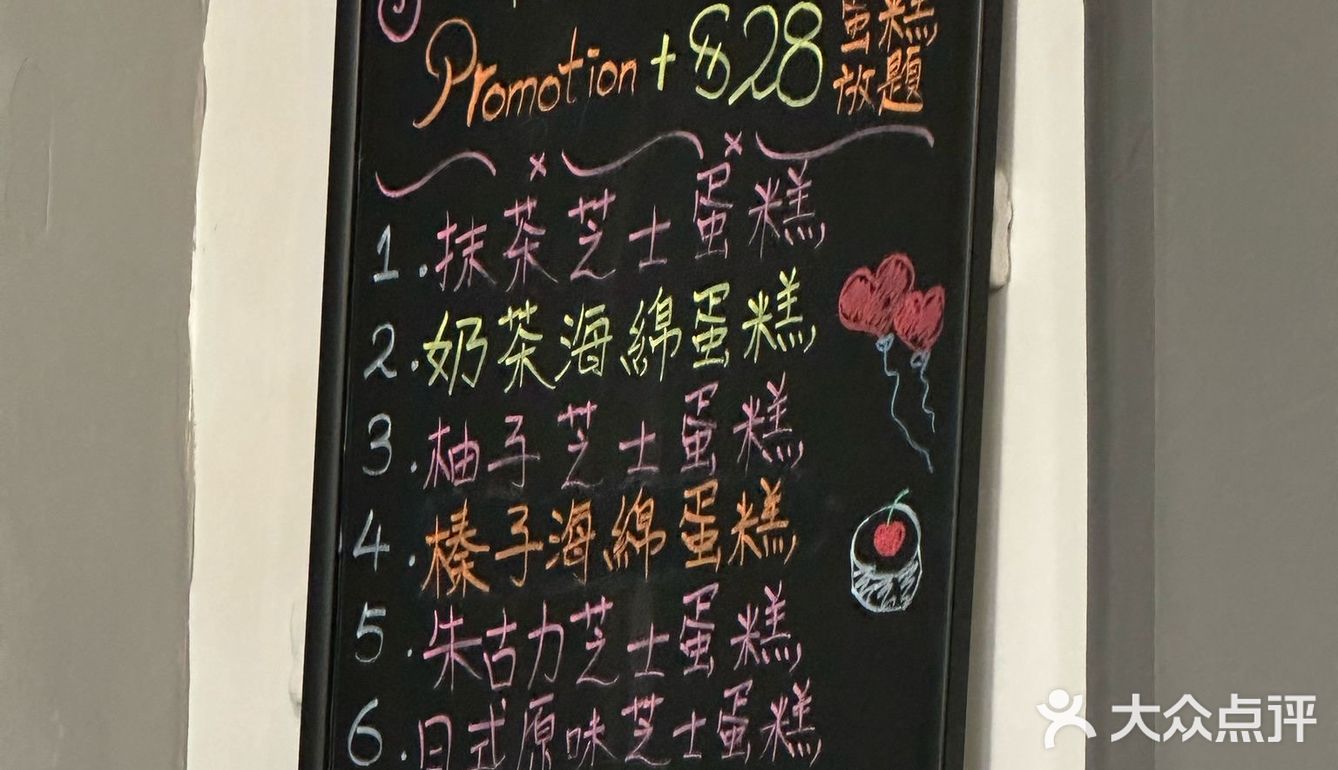 Promotion + $28 蛋糕放題
1. 抹茶芝士蛋糕
2. 奶茶海綿蛋糕
3. 柚子芝士蛋糕
4. 榛子海綿蛋糕
5. 朱古力芝士蛋糕
6. 日式原味芝士蛋糕
大众点评